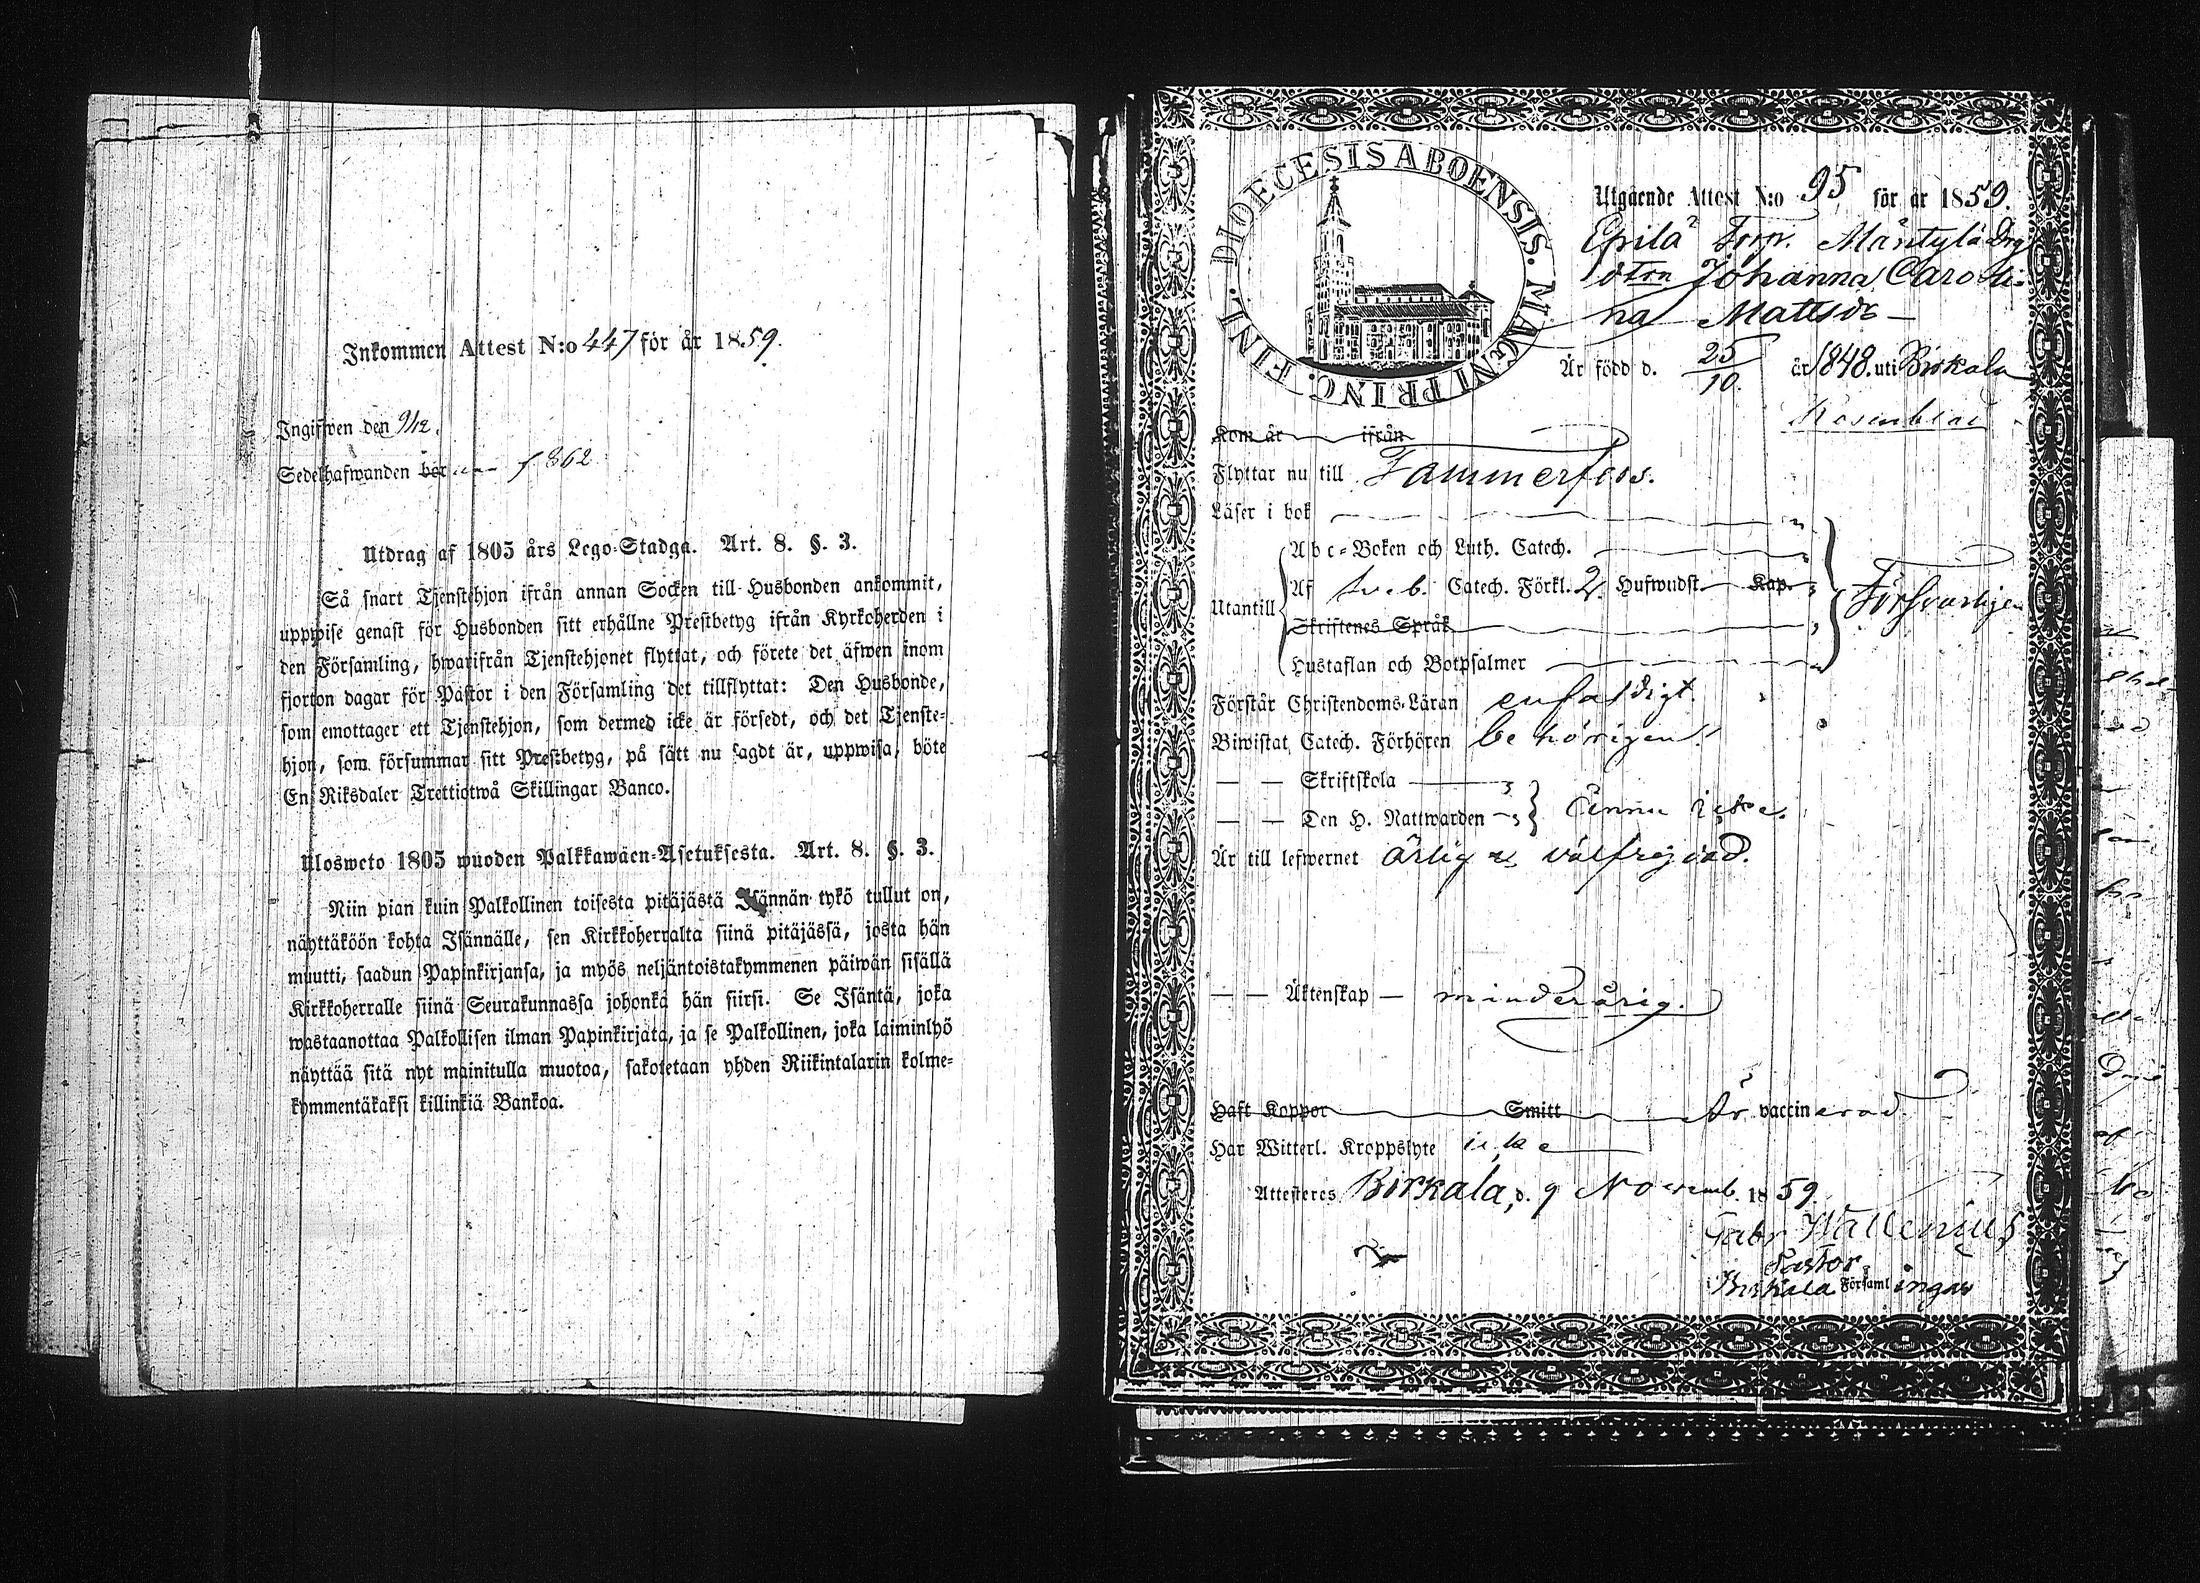 Inkommen Attest N:o 447 för år 1859.
Ingifwen den 9/12.
Sedelhafwanden bör f 862
Utdrag af 1805 års Lego-Stadga. Art. 8. §. 3.
Så snart Tjenstehjon ifrån annan Socken till Husbonden ankommit,
uppwise genast för Husbonden sitt erhållne Prestbetyg ifrån Kyrkoherden i
den Församling, hwarifrån Tjenstehjonet flyttat, och förete det äfwen inom
fjorton dagar för Pastor i den Församling det tillflyttat: Den Husbonde,
som emottager ett Tjenstehjon, som dermed icke är försedt, och det Tjenste-
hjon, som försummar sitt Prestbetyg, på sätt nu sagdt är, uppwisa, böte
En Riksdaler Trettiotwå Skillingar Banco.
Ulosweto 1805 wuoden Palkkawäen-Asetuksesta. Art. 8. §. 3.
Niin pian kuin Palkollinen toisesta pitäjästä Isännän tykö tullut on,
näyttäköön kohta Isännälle, sen Kirkkoherralta siinä pitäjässä, josta hän
muutti, saadun Papinkirjansa, ja myös neljäntoistakymmenen päiwän sisällä
Kirkkoherralle siinä Seurakunnassa johonka hän siirsi. Se Isäntä, joka
wastaanottaa Palkollisen ilman Papinkirjata, ja se Palkollinen, joka laiminlyö
näyttää sitä nyt mainitulla muotoa, sakotetaan yhden Riikintalarin kolme-
kymmentäkaksi killinkiä Bankoa.
DIOECESIS ABOENSIS. MAGNI PRINC. FINL.
Utgående Attest N:o 95 för år 1859.
Epilä Torp. Mäntylä
dotrn Johanna Caroli-
na Mattsdr
Är född d. 25/10. år 1848. uti Birkala
Rosenblad
Kom år ifrån
Flyttar nu till Tammerfors.
Läser i bok
Abc-Boken och Luth. Catech.
Utantill Af Sveb. Catech. Förkl. 2. Hufwudst. Kap. Försvarlig
Skriftenes Språk
Hustaflan och Botpsalmer
Förstår Christendoms-Läran enfaldigt
Biwistat Catech. Förhören behörigen
— — Skriftskola
— — Den H. Nattwarden ännu icke.
Är till lefwernet ärlig och välfrejdad.
— — Äktenskap — minderårig.
Haft Koppor Smitt Är vaccinerad
Har Witterl. Kroppslyte icke
Attesteras Birkala, d. 9 Novemb. 1859.
Gabr Wallenius
Pastor
i Birkala Församlingar